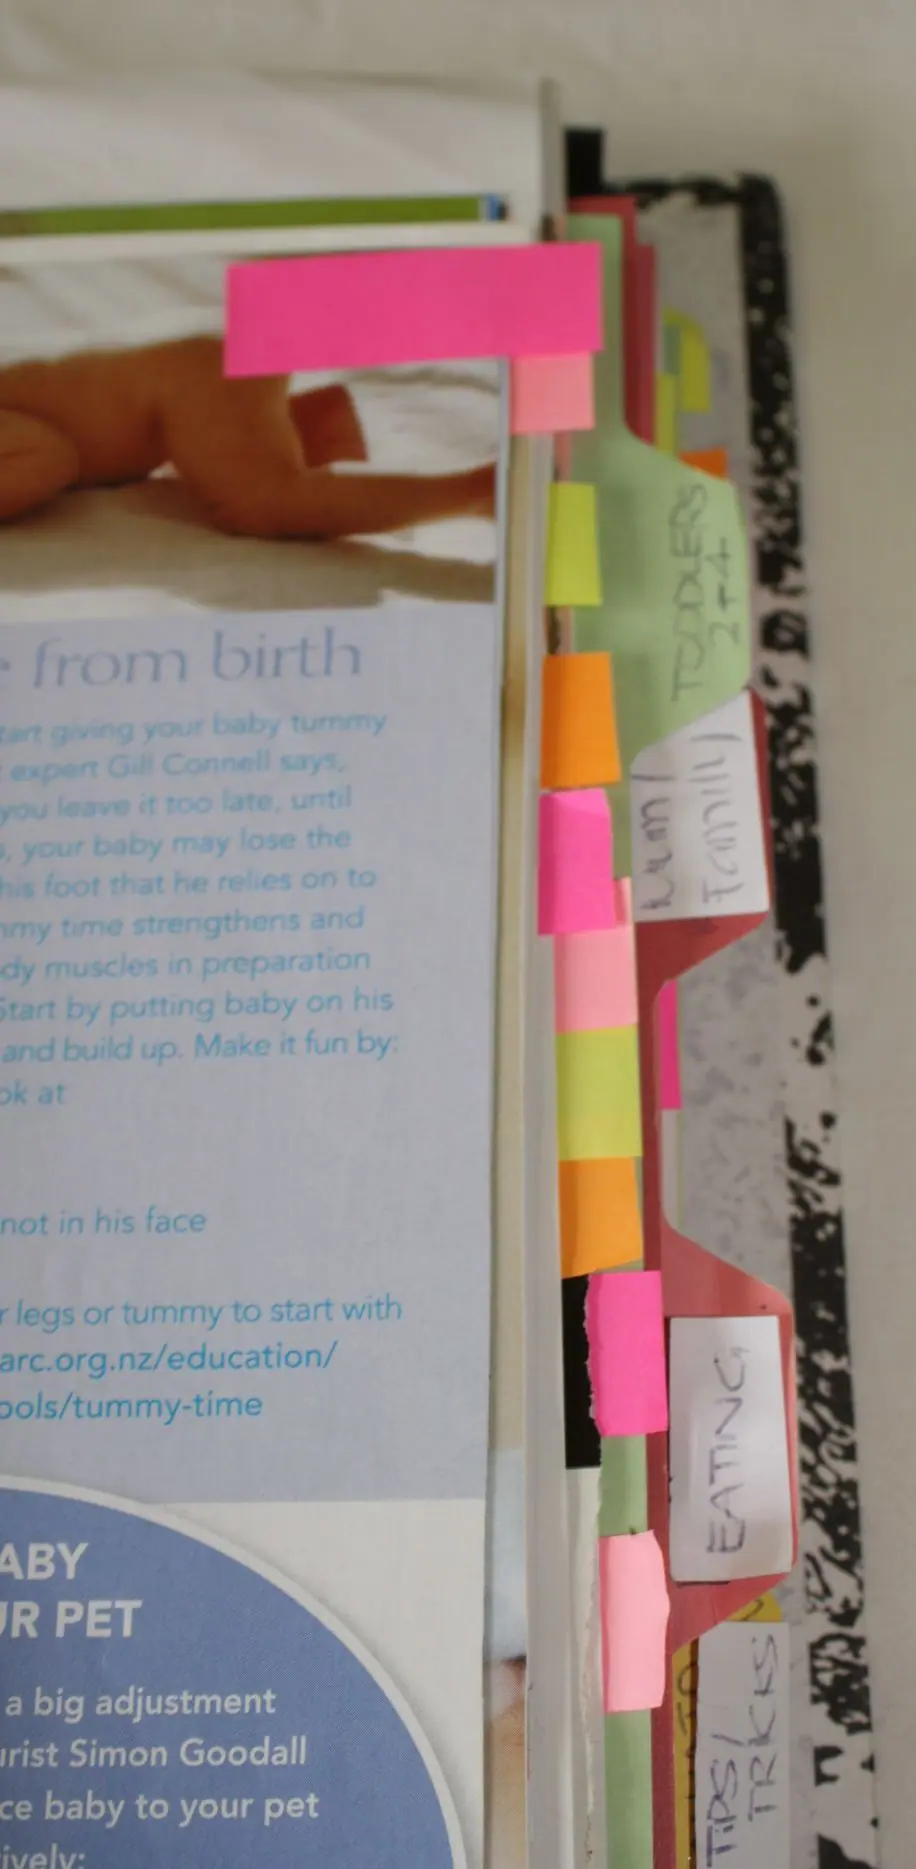 from birth
start giving your baby tummy
expert Gill Connell says,
you leave it too late, until
your baby may lose the
his foot that he relies on to
time strengthens and
muscles in preparation
Start by putting baby on his
and build up. Make it fun by:
at
not in his face
legs or tummy to start with
arc.org.nz/education/
ools/tummy-time
ABY
UR PET
a big adjustment
Simon Goodall
baby to your pet
TODDLERS
2+4
Mum/
Family
EATING
TiPS/
TRICKS